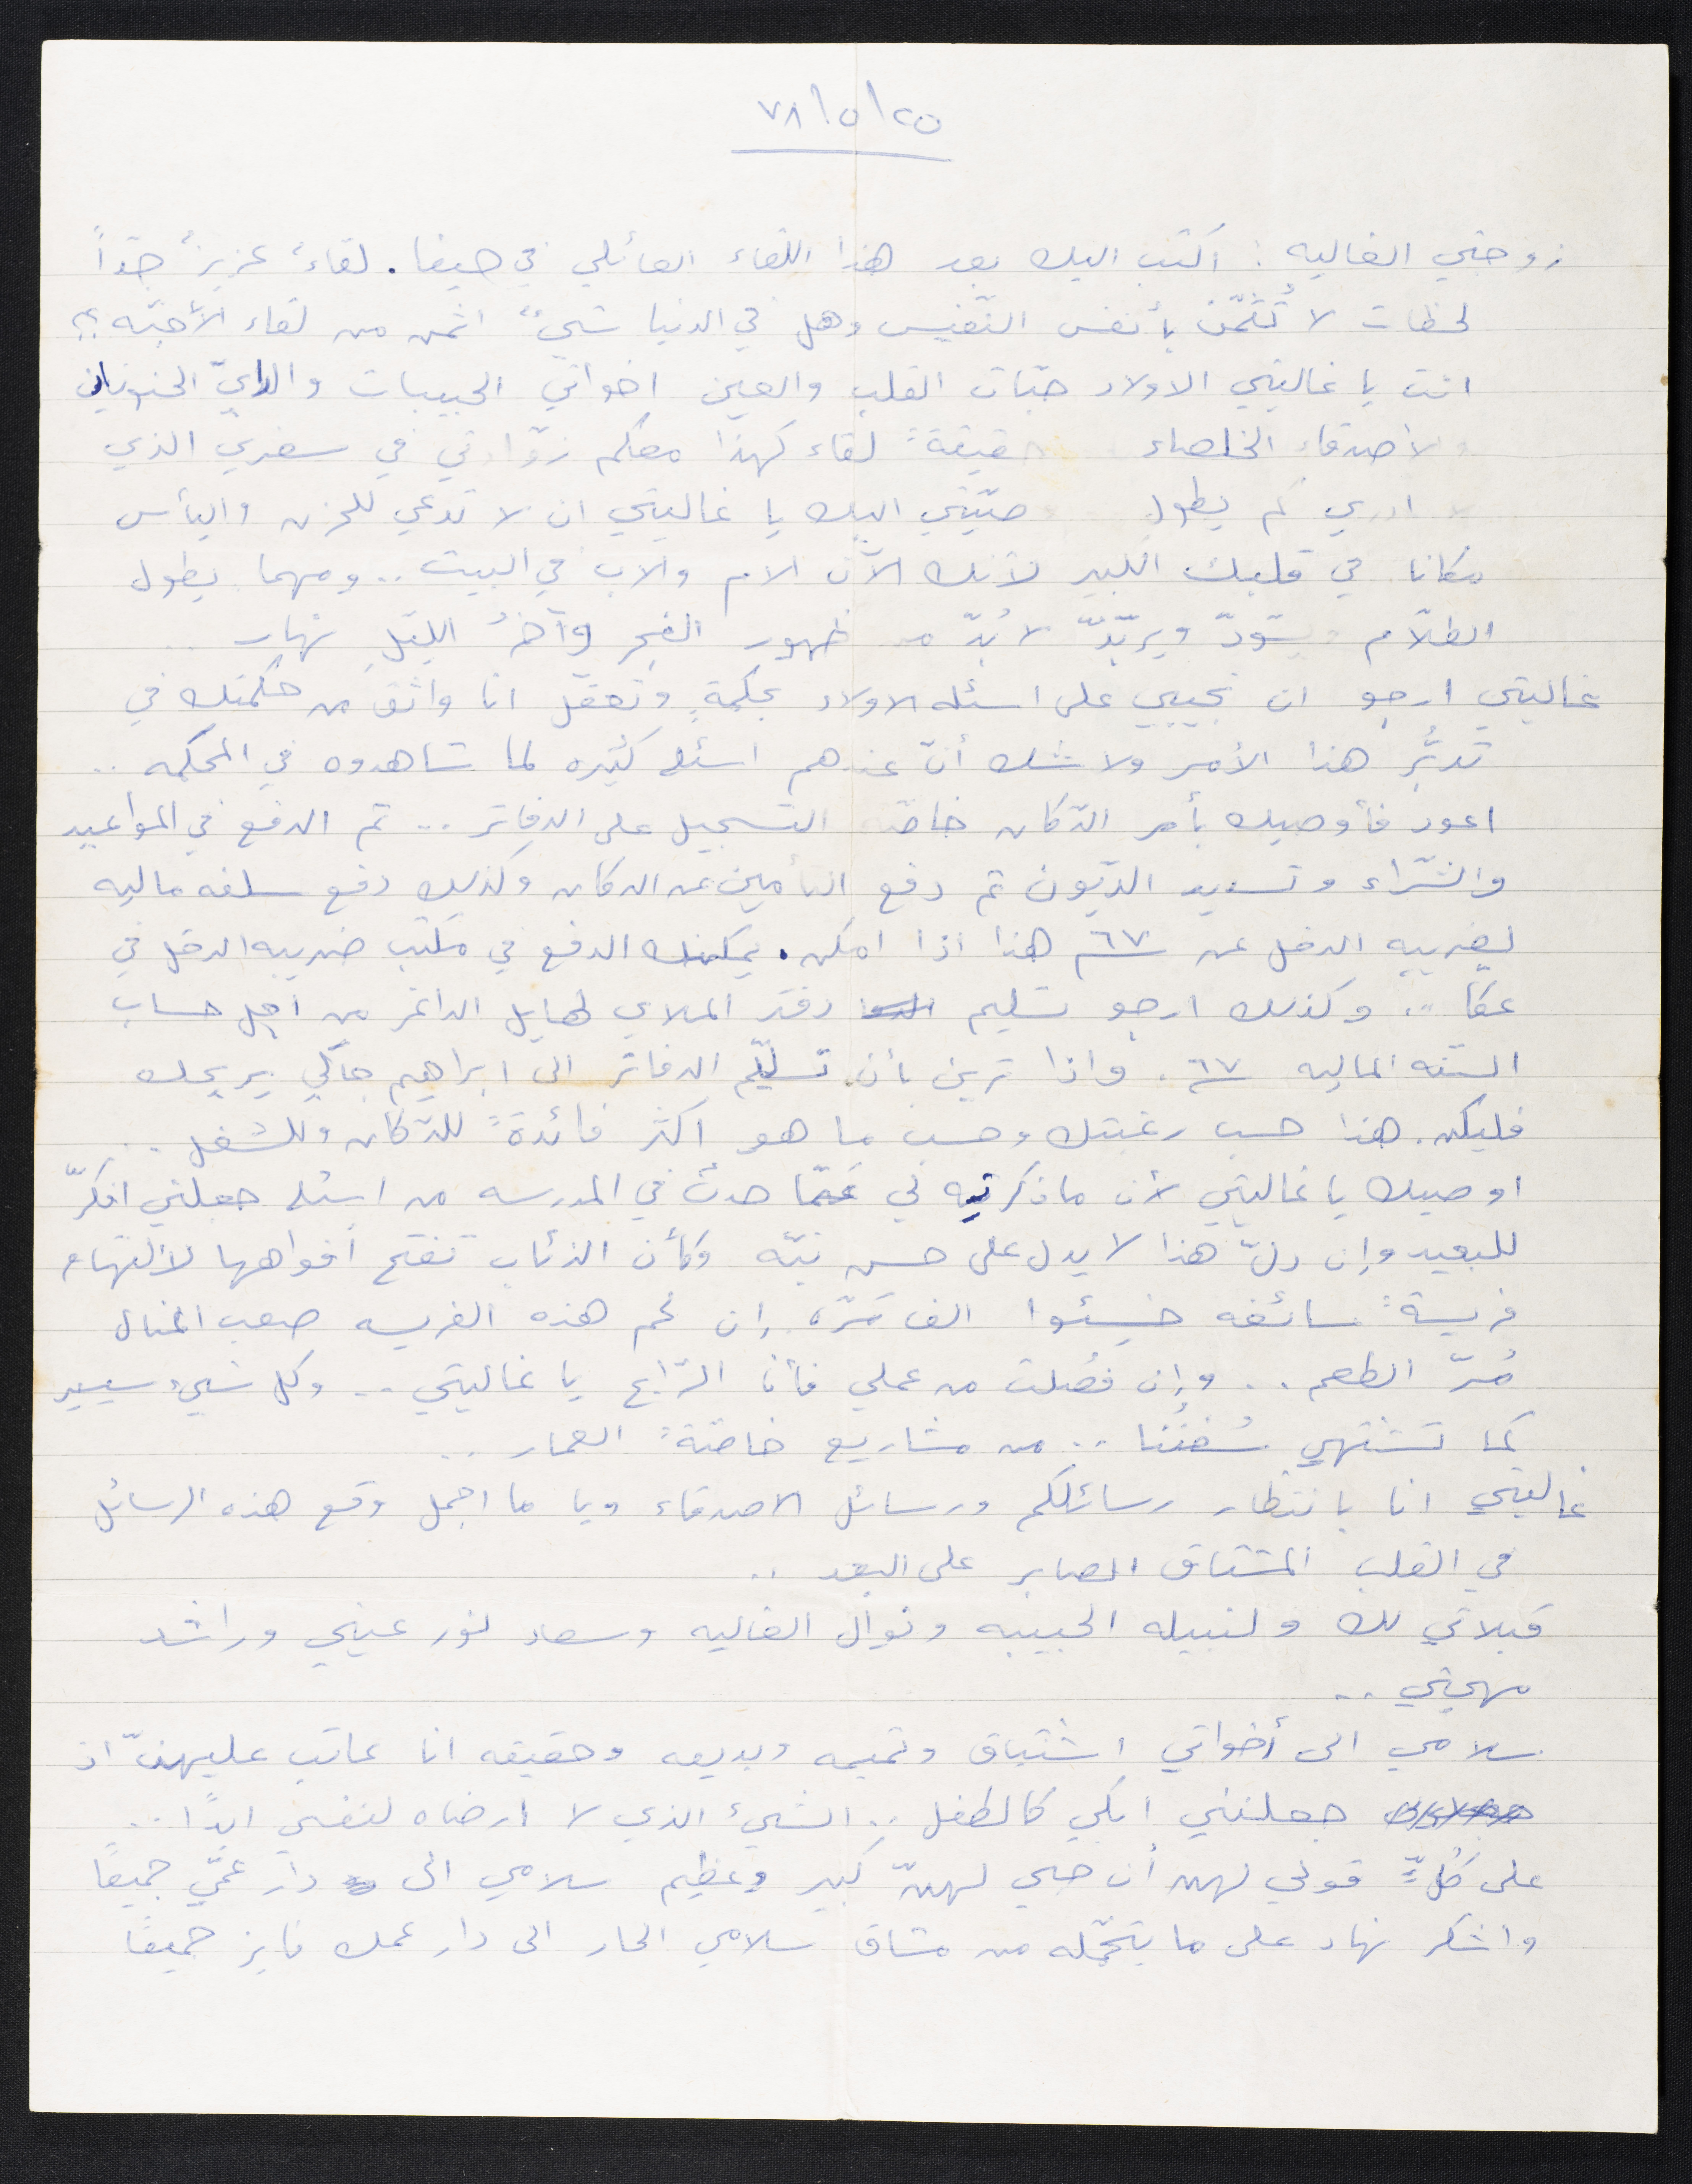 ٢٥/٥/٧٨
زوجتي الغاليه : اكتب اليك بعد هذا اللقاء العائلي في حيفا . لقاءٌ عزيزٌ جدّاً
لحظات لا تُثمّن بأنفس النّفيس وهل في الدنيا شيءٌ اثمن من لقاء الأحبّه ؟؟
انت يا غاليتي الاولاد حبّات القلب والعين اخواتي الحبيبات والدايّ الحنونان
والاصدقاء الخلصاء حقيقةً لقاء كهذا معكم زوّادتي في سفري الذي
لا ادري كم يطول وصيّتي اليك يا غاليتي ان لا تدعي للحزن واليأس
مكانا في قلبك الكبير لأنك الآن الام والاب في البيت .. ومهما يطول
الظلّام ويسّودّ ويربّدّ لا بُدّ من ظهور الفجر وآخرُ الليّلِ نهار ..
غاليتي ارجو ان تجيبي على اسئله الاولاد بحكمةٍ وتعقّل انا واثق من حكمتك في
تدبُّر هذا الأمر ولا شك أنّ عندهم اسئله كثيره لما شاهدوه في المحكمه ..
اعود فأوصيك بأمر الدّكان خاصّة التسجيل على الدفاتر ... ثم الدفع في المواعيد
والشّراء وتسديد الدّيون ثم دفع التأمين عن الدكان وكذلك دفع سلفه ماليه
لضريبه الدخل عن ٦٧ هذا اذا امكن . يمكنك الدفع في مكتب ضريبه الدخل في
عكا .. وكذلك ارجو تسليم دفتر الملاي لهايل الداغر من اجل حساب
السّنه الماليه ٦٧ . واذا ترين بأن تسليم الدفاتر الى ابراهيم جاكي يريحك
فليكن . هذا حسب رغبتك وحسب ما هو اكثر فائدةً للدّكان وللشغل ..
اوصيك يا غاليتي لأن ما ذكرتيه لي عمّا حدث في المدرسه من اسئله جعلتي افكرّ
للبعيد وإن دلّ هذا لا يدل على حسن نيّه وكأن الذئاب تفتح أفواهها لالتهام
فريسةً سائغه خسئوا الف مرّه إن لحم هذه الفريسه صعب المنال
مُرّ الطعم .. وإن فصُلت من عملي فأنا الرّابح يا غاليتي .. وكل شيء سيسير
كما تشتهي سُفنُنا .. من مشاريع خاصّةً العمار ..
غاليتي انا بانتظار رسائلكم ورسائل الاصدقاء ويا ما اجمل وقع هذه الرسائل
في القلب المشتاق الصابر على البعد ..
قبلاتي لك ولنبيله الحبيبه ونوال الغاليه وسعاد نور عيني وراشد
مهجتي ..
سلامي الى أخواتي اشتياق وتميمه وبديعه وحقيقه انا عاتب عليهنّ اذ
جعلنني ابكي كالطفل .. الشيء الذي لا ارضاه لنفسي ابدًا ..
على كلٍّ قولي لهن أن حبي لهنّ كبير وعظيم سلامي الى دار عمّي جميعًا
واشكر نهاد على ما يتحمّله من مشاق سلامي الحار الى دار عمك فايز جميعًا